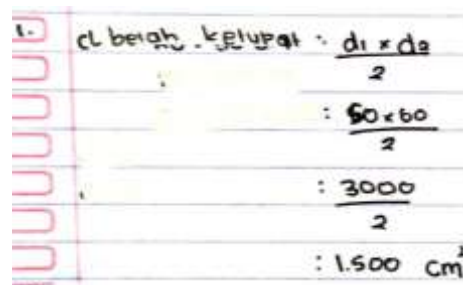 1. cL belah ketupat : d1 x d2
2
: 50 x 60
2
: 3000
2
: 1.500 cm²